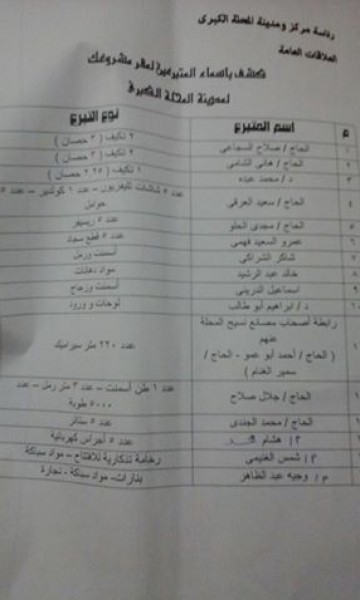 رئاسة مركز ومدينة المحلة الكبرى
العلاقات العامة
كشف بأسماء المتبرعين لمقر مشروعك
لمدينة المحلة الكبرى
م اسم المتبرع نوع التبرع
١ الحاج / صلاح السجاعي ٢ تكيف ( ٣ حصان )
٢ الحاج / هاني الشامي ٢ تكيف ( ٣ حصان )
٣ د / محمد عبده ١ تكيف ( ٢.٢٥ حصان )
٤ الحاج / سعيد العرقي عدد ٥ شاشات تليفزيون – عدد ١ كولدير – عدد ٥
حوامل
٥ الحاج / مجدي الحلو عدد ٥ ريسيفر
٦ عمرو السعيد فهمى عدد ٥ قطع سجاد
٧ شاكر الشراكي أسمنت ورمل
٨ خالد عبد الرشيد مواد دهانات
٩ اسماعيل الدريني أسمنت وزجاج
١٠ د / ابراهيم أبو طالب لوحات و ورود
رابطة أصحاب مصانع نسيج المحلة
عنهم
( الحاج / أحمد أبو عمو - الحاج /
سمير الغنام )
عدد ٢٢٠ متر سيراميك
الحاج / جلال صلاح عدد ١ طن أسمنت – عدد ٣ متر رمل – عدد
٥٠٠٠ طوبة
الحاج / محمد الجندي عدد ٥ ستائر
أ / هشام عدد ٥ أجراس كهربائية
أ / شمس الغنيمى رخامة تذكارية للإفتتاح – مواد سباكة
م / وجيه عبد الظاهر مواد سباكة - نجارة